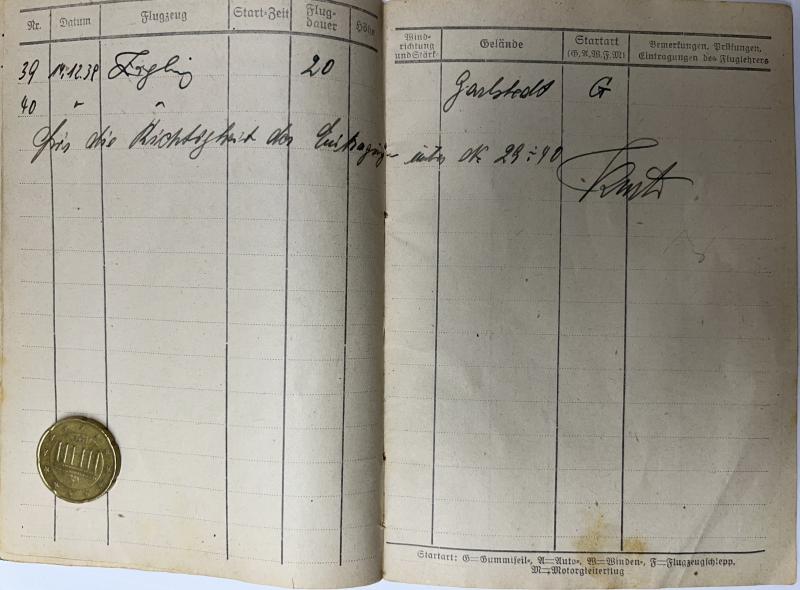 Nr. Datum Flugzeug Start-Zeit Flug-dauer Höhe
Wind-richtung und Stärk. Gelände Startart (G.A.W.F.M) Bemerkungen, Prüfungen, Eintragungen des Fluglehrers
39 14.12.38 Zögling 20 Garlstedt G
40 " "
für die Richtigkeit der Eintragungen unter Nr 29÷40
Startart: G=Gummiseil-, A=Auto-, W=Winden-, F=Flugzeugschlepp.
M=Motorgleiterflug